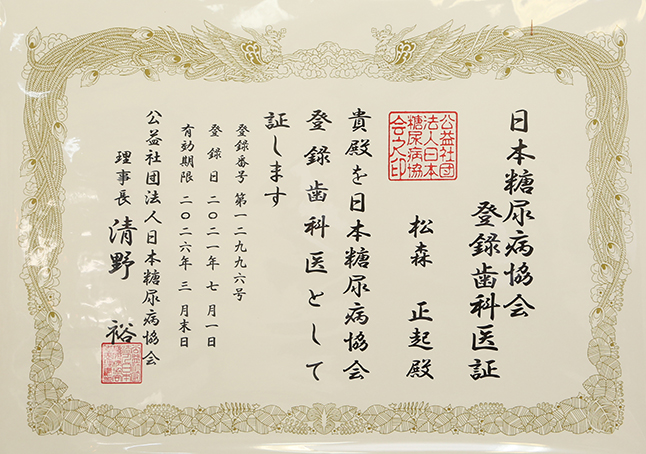 日本糖尿病協会
登録歯科医証
公益社団
法人日本
糖尿病協
会之印
松森 正起殿
貴殿を日本糖尿病協会
登録歯科医として
証します
登録番号 第一二九九六号
登録日 二〇二一年 七月一日
有効期限 二〇二六年 三月末日
公益社団法人日本糖尿病協会
理事長 清野 裕